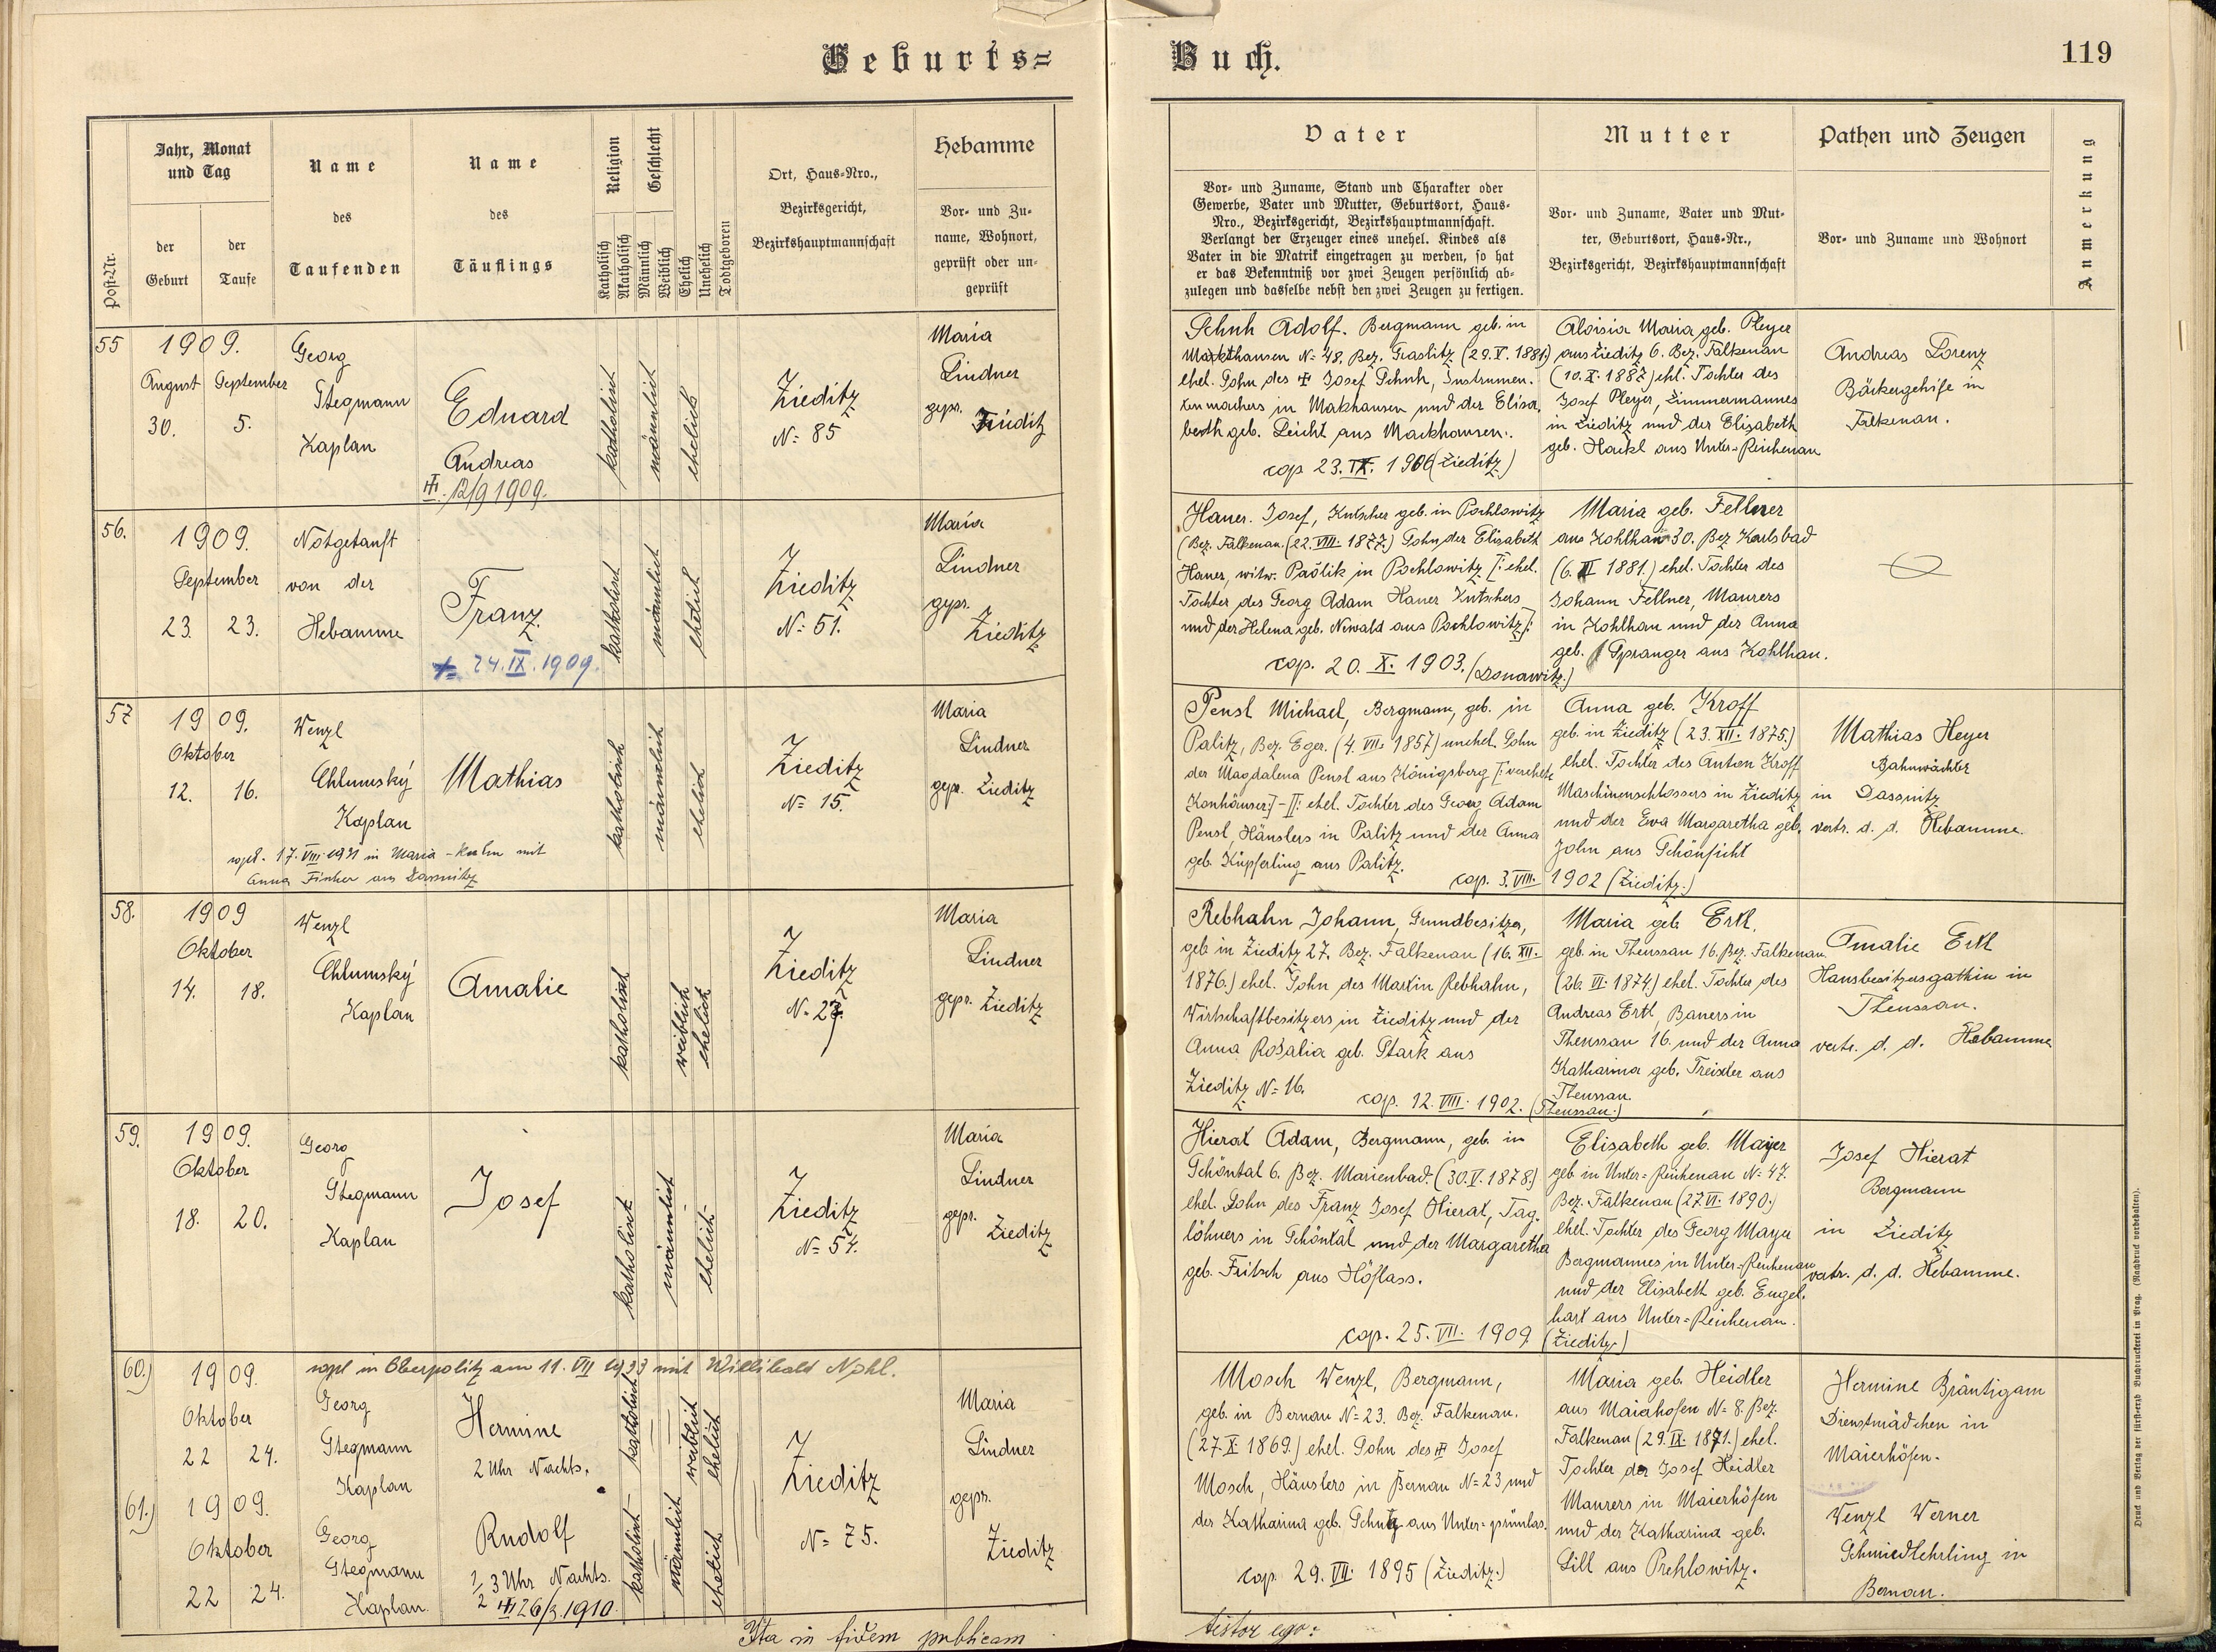 Geburts=
Buch.
119
Post-Nr.
Jahr, Monat
und Tag
der
Geburt
der
Taufe
Name
des
Taufenden
Name
des
Täuflings
Religion
Katholisch
Akatholisch
Geschlecht
Männlich
Weiblich
Ehelich
Unehelich
Todtgeboren
Ort, Haus-Nro.,
Bezirksgericht,
Bezirkshauptmannschaft
Hebamme
Vor- und Zu-
name, Wohnort,
geprüft oder un-
geprüft
Vater
Vor- und Zuname, Stand und Charakter oder
Gewerbe, Vater und Mutter, Geburtsort, Haus-
Nro., Bezirksgericht, Bezirkshauptmannschaft.
Verlangt der Erzeuger eines unehel. Kindes als
Vater in die Matrik eingetragen zu werden, so hat
er das Bekenntniß vor zwei Zeugen persönlich ab-
zulegen und dasselbe nebst den zwei Zeugen zu fertigen.
Mutter
Vor- und Zuname, Vater und Mut-
ter, Geburtsort, Haus-Nr.,
Bezirksgericht, Bezirkshauptmannschaft
Pathen und Zeugen
Vor- und Zuname und Wohnort
Anmerkung
55
1909.
August September
30. 5.
Georg
Stegmann
Kaplan
Eduard
Andreas
12/9 1909.
katholisch
männlich
ehelich
Zieditz
N= 85
Maria
Lindner
gepr.
Zieditz
Schuh Adolf. Bergmann geb. in
Markthausen N= 48. Bez. Graslitz (29.V. 1881)
ehel. Sohn des Josef Schuh, Instrumen-
tenmachers in Makhausen und der Elisa-
beth geb. Leicht aus Markhausen.
cop 23. IX. 1906 (Zieditz)
Aloisia Maria geb. Pleyer
aus Zieditz 6. Bez. Falkenau
(10. X. 1887) ehl. Tochter des
Josef Pleyer, Zimmermannes
in Zieditz und der Elisabeth
geb. Hackl aus Unter=Reichenau
Andreas Lorenz
Bäckergehilfe in
Falkenau.
56.
1909.
September
23. 23.
Notgetauft
von der
Hebamme
Franz.
24. IX. 1909.
katholisch
männlich
ehelich
Zieditz
N= 51.
Maria
Lindner
gepr.
Zieditz
Hauer. Josef, Kutscher geb. in Pochlowitz
(Bez. Falkenau. (22. VIII. 1877.) Sohn der Elisabeth
Hauer, witw. Paölik in Pochlowitz [: ehel.
Tochter des Georg Adam Hauer Kutschers
und der Helena geb. Newald aus Pochlowitz :]
cop. 20. X. 1903. (Donawitz.)
Maria geb. Fellner
aus Kohlhau 30. Bez. Karlsbad
(6. 1881.) ehel. Tochter des
Johann Fellner, Maurers
in Kohlhau und der Anna
geb. Spranger aus Kohlhau.
57
1909.
Oktober
12. 16.
Wenzl
Chlumský
Kaplan
copul. 17. VIII. 1931 in Maria-Kulm mit
Anna Fischer aus Dassnitz
Mathias
katholisch
männlich
ehelich
Zieditz
N= 15.
Maria
Lindner
gepr. Zieditz
Pensl Michael, Bergmann, geb. in
Palitz, Bez. Eger. (4. VII. 1857) unehel. Sohn
der Magdalena Pensl aus Königsberg [: verehel.
Konhäuser:] - [: ehel. Tochter des Georg Adam
Pensl, Häuslers in Palitz und der Anna
geb. Küpferling aus Palitz.
cop. 3. VIII. 1902 (Zieditz.)
Anna geb. Kroff
geb. in Zieditz (23. XII. 1875.)
ehel. Tochter des Anton Kroff
Maschinenschlossers in Zieditz
und der Eva Margaretha geb.
John aus Schönficht
Mathias Heyer
Bahnwächter
in Dassnitz
vertr. d. d. Hebamme.
58.
1909
Oktober
14. 18.
Wenzl
Chlumský
Kaplan
Amalie
katholisch
weiblich
ehelich
Zieditz
N= 27.
Maria
Lindner
gepr. Zieditz
Rebhahn Johann, Grundbesitzer,
geb in Zieditz 27. Bez. Falkenau (16. XII.
1876.) ehel. Sohn des Martin Rebhahn,
Wirtschaftbesitzers in Zieditz und der
Anna Rosalia geb. Stark aus
Zieditz N= 16.
cop. 12. VIII. 1902. (Theussau.)
Maria geb Ertl.
geb. in Theussau 16. Bez. Falkenau
(26. III. 1874.) ehel. Tochter des
Andreas Ertl, Bauers in
Theussau 16. und der Anna
Katharina geb. Treixler aus
Theussau.
Amalie Ertl
Hausbesitzersgattin in
Theussau.
vertr. d. d. Hebamme
59.
1909.
Oktober
18. 20.
Georg
Stegmann
Kaplan
Josef
katholisch
männlich
ehelich
Zieditz
N= 54.
Maria
Lindner
gepr.
Zieditz
Hierat Adam, Bergmann, geb. in
Schöntal 6. Bez. Marienbad. (30. V. 1878.)
ehel. Sohn des Franz Josef Hierat, Tag-
löhners in Schöntal und der Margaretha
geb. Fritsch aus Höflass.
cop. 25. VII. 1909 (Zieditz)
Elisabeth geb. Mayer
geb. in Unter=Reichenau N= 47.
Bez. Falkenau (27. VI. 1890.)
ehel. Tochter des Georg Mayer
Bergmannes in Unter=Reichenau
und der Elisabeth geb. Engel-
hart aus Unter=Reichenau.
Josef Hierat
Bergmann
in Zieditz
vertr. d. d. Hebamme.
60.)
copul in Oberpolitz am 11. VII 1933 mit Willibald Nohl.
1909.
Oktober
22 24.
Georg
Stegmann
Kaplan
Hermine
2 Uhr Nachts.
katholisch
weiblich
ehelich
61.)
1909.
Oktober
22 24.
Georg
Stegmann
Kaplan.
Rudolf
1/2 3 Uhr Nachts.
26/3. 1910.
katholisch
männlich
ehelich
Zieditz
N= 75.
Maria
Lindner
gepr.
Zieditz
Mosch Wenzl, Bergmann,
geb. in Bernau N= 23. Bez. Falkenau.
(27. X. 1869.) ehel. Sohn des Josef
Mosch, Häuslers in Bernau N= 23 und
der Katharina geb. Schutz aus Unter=grünlas.
cop. 29. VII. 1895 (Zieditz.)
Maria geb. Heidler
aus Maiahofen N= 8. Bez.
Falkenau (29. IX. 1871.) ehel.
Tochter des Josef Heidler
Maurers in Maierhöfen
und der Katharina geb.
Lill aus Prehlowitz.
Hermine Bräutigam
Dienstmädchen in
Maierhöfen.
Wenzl Werner
Schmiedlehrling in
Bernau.
Ita in fidem publicam
testor ego:
Druck und Verlag der fürst-erzb Buchdruckerei in Prag. (Nachdruck vorbehalten).